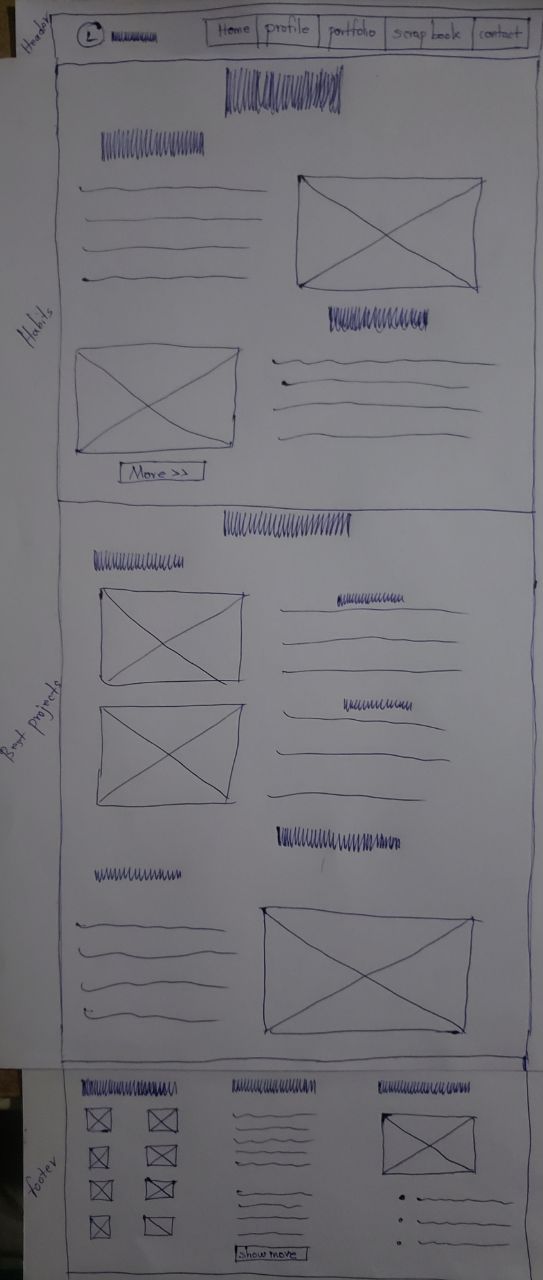 Header
L
Home profile portfolio scrap book contact
Habits
More >>
Best projects
footer
show more